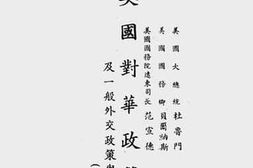 美國大總統 杜魯門
美國國務卿 貝爾納斯
美國國務院遠東司長 范宣德
美國對華政策
及一般外交政策